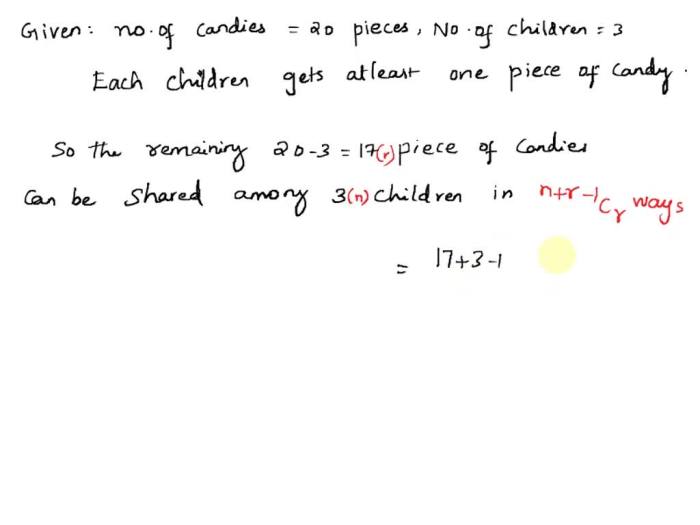 Given: no. of candies = 20 pieces, No. of children = 3
Each children gets atleast one piece of candy.
So the remaining 20-3 = 17(r) piece of candies
can be shared among 3(n) children in n+r-1Cr ways
= 17+3-1